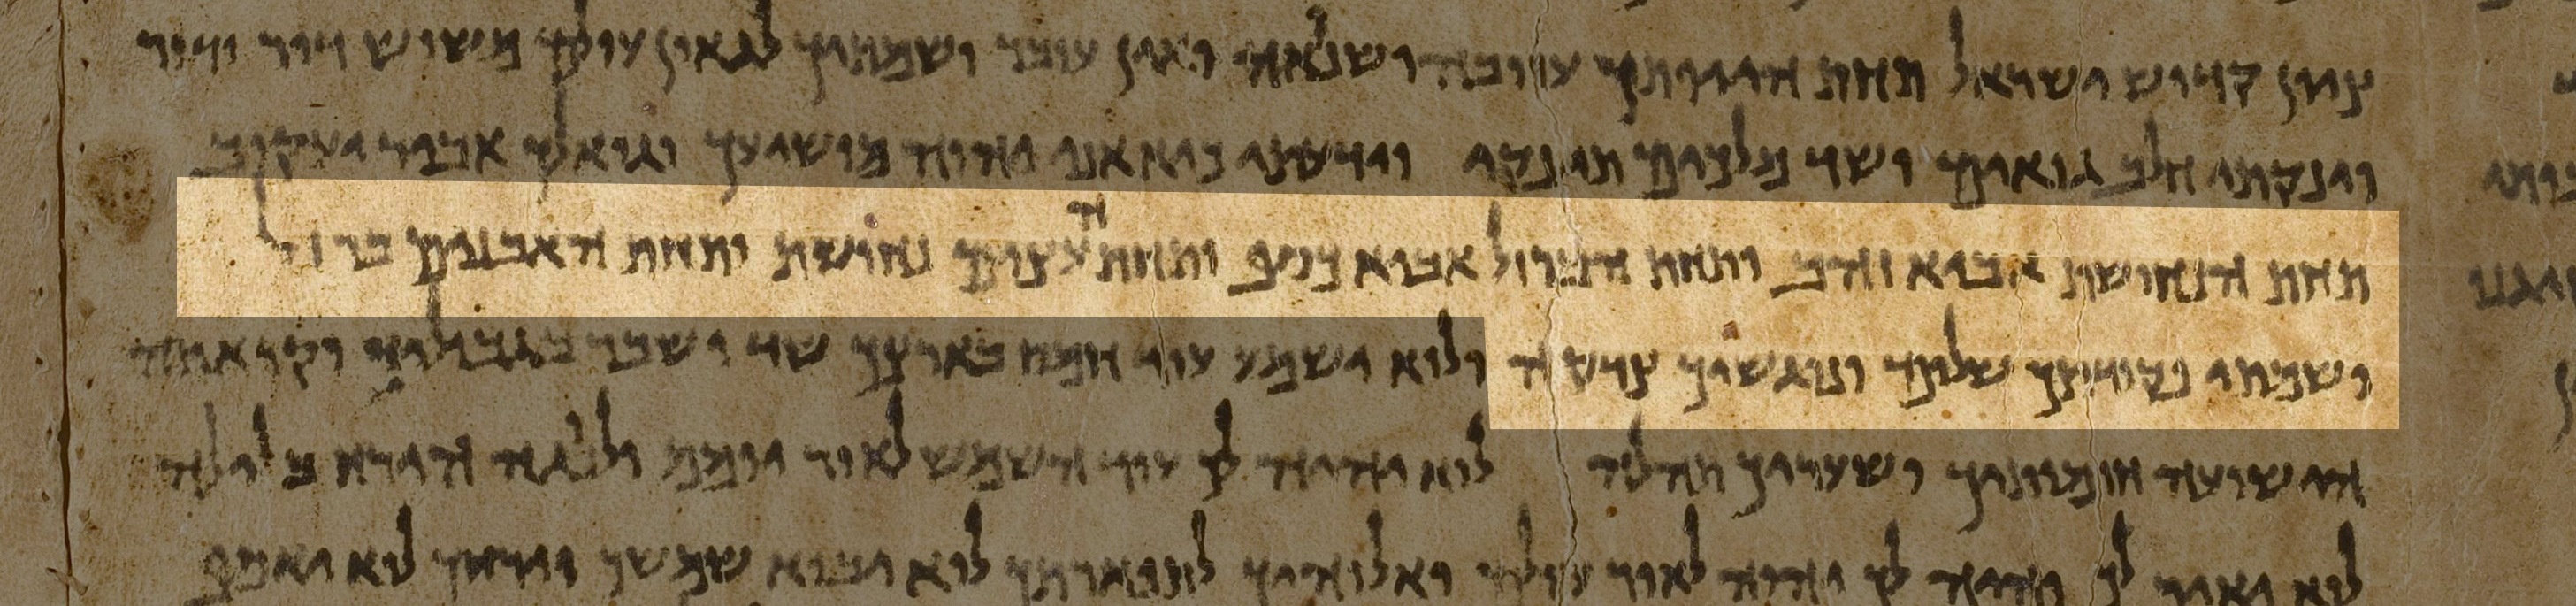 ציון קדוש ישראל תחת היותך עזובה ושנואה ואין עובר ושמתיך לגאון עולם משוש דור ודור
וינקתי חלב גואים ושד מלכים תינקי וידעתי כיא אני יהוה מושיעך וגואלך אביר יעקוב
תחת הנחושת אביא זהב ותחת הברזל אביא כסף ותחת העצים נחושת ותחת האבנים ברזל
ושמתי פקודתך שלום ונוגשיך צדקה ולוא ישמע עוד חמס בארצך שד ושבר בגבוליך וקראתי
ישועה חומותיך ושעריך תהלה לוא יהיה לך עוד השמש לאור יומם ולנגה הירח בלילה
לוא יאיר לך והיה לך יהוה לאור עולם ואלוהיך לתפארתך לוא יבוא שמשך וירחך לוא יאסף